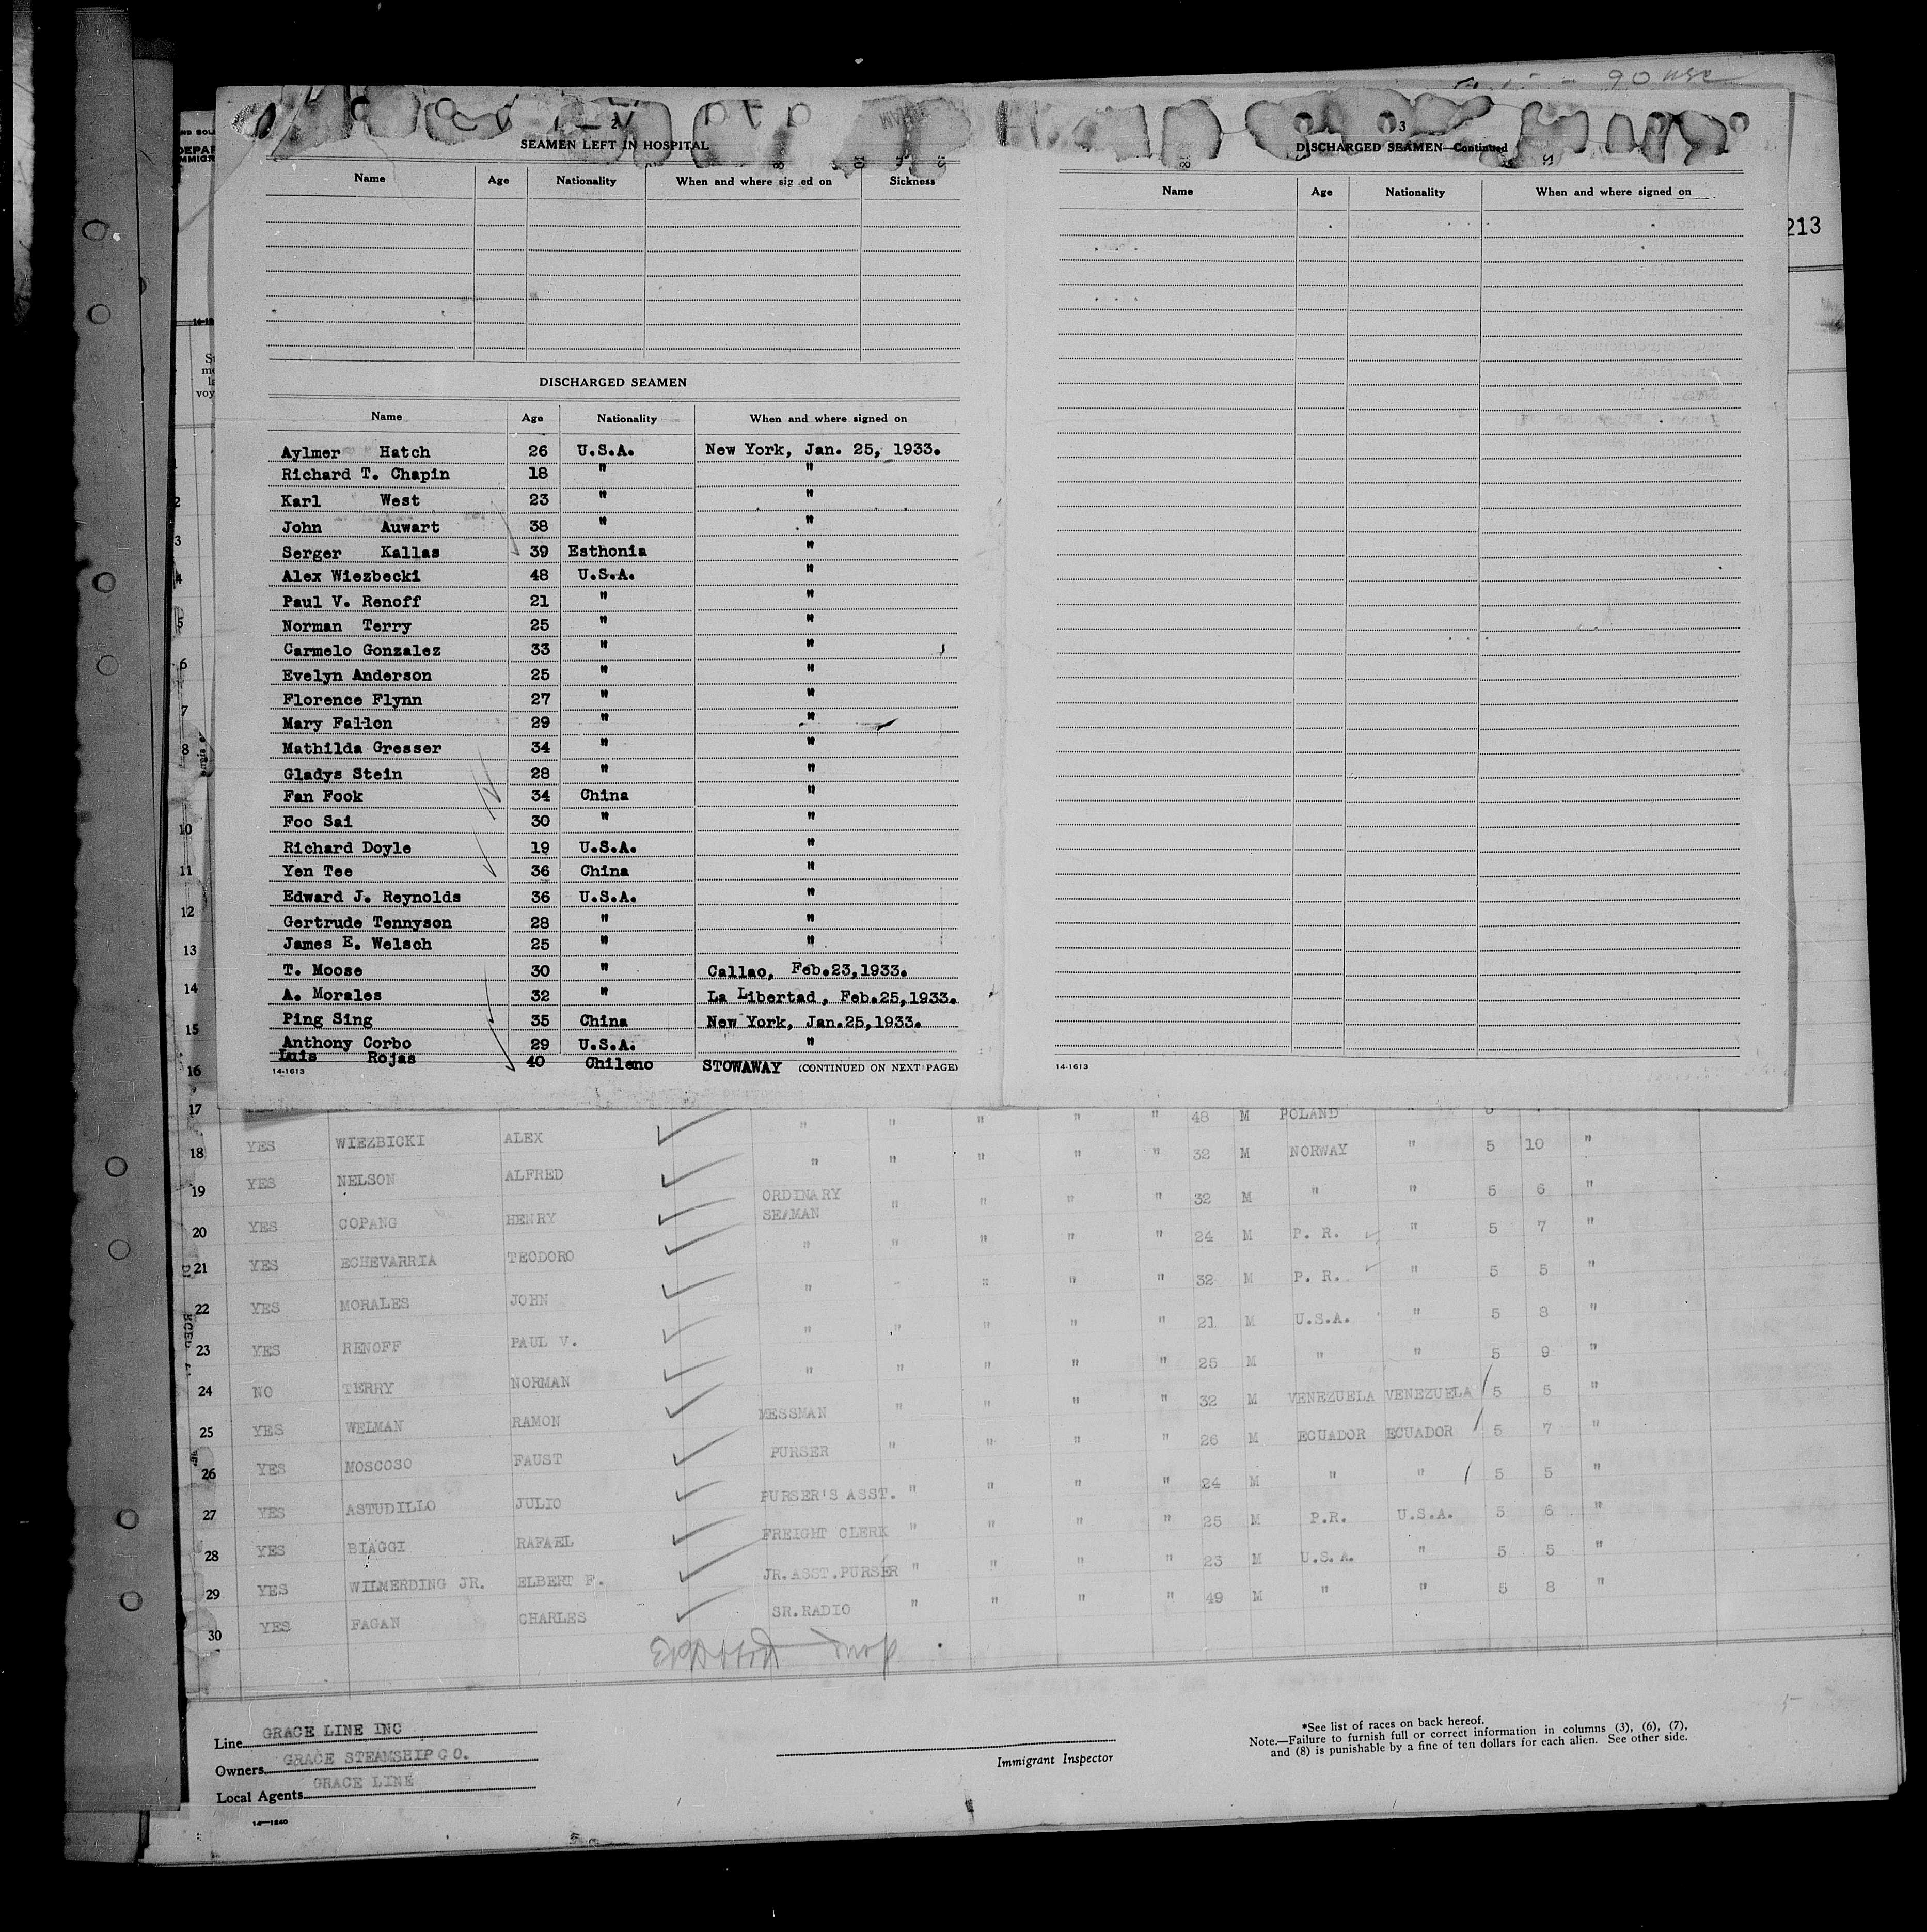 90
213
2
SEAMEN LEFT IN HOSPITAL
Name Age Nationality When and where signed on Sickness
DISCHARGED SEAMEN
Name Age Nationality When and where signed on
Aylmer Hatch 26 U.S.A. New York, Jan. 25, 1933.
Richard T. Chapin 18 " "
Karl West 23 " "
John Auwart 38 " "
Serger Kallas 39 Esthonia "
Alex Wiezbecki 48 U.S.A. "
Paul V. Renoff 21 " "
Norman Terry 25 " "
Carmelo Gonzalez 33 " "
Evelyn Anderson 25 " "
Florence Flynn 27 " "
Mary Fallon 29 " "
Mathilda Gresser 34 " "
Gladys Stein 28 " "
Fan Fook 34 China "
Foo Sai 30 " "
Richard Doyle 19 U.S.A. "
Yen Tee 36 China "
Edward J. Reynolds 36 U.S.A. "
Gertrude Tennyson 28 " "
James E. Welsch 25 " "
T. Moose 30 " Callao, Feb.23,1933.
A. Morales 32 " La Libertad, Feb.25,1933.
Ping Sing 35 China New York, Jan.25,1933.
Anthony Corbo 29 U.S.A. "
Luis Rojas 40 Chileno STOWAWAY (CONTINUED ON NEXT PAGE)
14-1613
3
DISCHARGED SEAMEN—Continued
Name Age Nationality When and where signed on
14-1613
2
3
4
5
6
7
8
10
11
12
13
14
15
16
17 " " " " " 48 M POLAND "
18 YES WIEZBICKI ALEX " " " " " 32 M NORWAY " 5 10 "
19 YES NELSON ALFRED ORDINARY SEAMAN " " " " 32 M " " 5 6 "
20 YES COPANG HENRY " " " " " 24 M P. R. " 5 7 "
21 YES ECHEVARRIA TEODORO " " " " 32 M P. R. " 5 5 "
22 YES MORALES JOHN " " " " " 21 M U.S.A. " 5 8 "
23 YES RENOFF PAUL V. " " " " " 25 M " " 5 9 "
24 NO TERRY NORMAN " " " " 32 M VENEZUELA VENEZUELA 5 5 "
25 YES WELMAN RAMON MESSMAN " " " " 26 M ECUADOR ECUADOR 5 7 "
26 YES MOSCOSO FAUST PURSER " " " " 24 M " " 5 5 "
27 YES ASTUDILLO JULIO PURSER'S ASST. " " " " 25 M P.R. U.S.A. 5 6 "
28 YES BIAGGI RAFAEL FREIGHT CLERK " " " " 23 M U.S.A. " 5 5 "
29 YES WILMERDING JR. ELBERT F. JR.ASST.PURSER " " " " 49 M " " 5 8 "
30 YES FAGAN CHARLES SR.RADIO
Line GRACE LINE INC
Owners GRACE STEAMSHIP CO.
Local Agents GRACE LINE
14—1240
Immigrant Inspector
*See list of races on back hereof.
Note.—Failure to furnish full or correct information in columns (3), (6), (7),
and (8) is punishable by a fine of ten dollars for each alien. See other side.